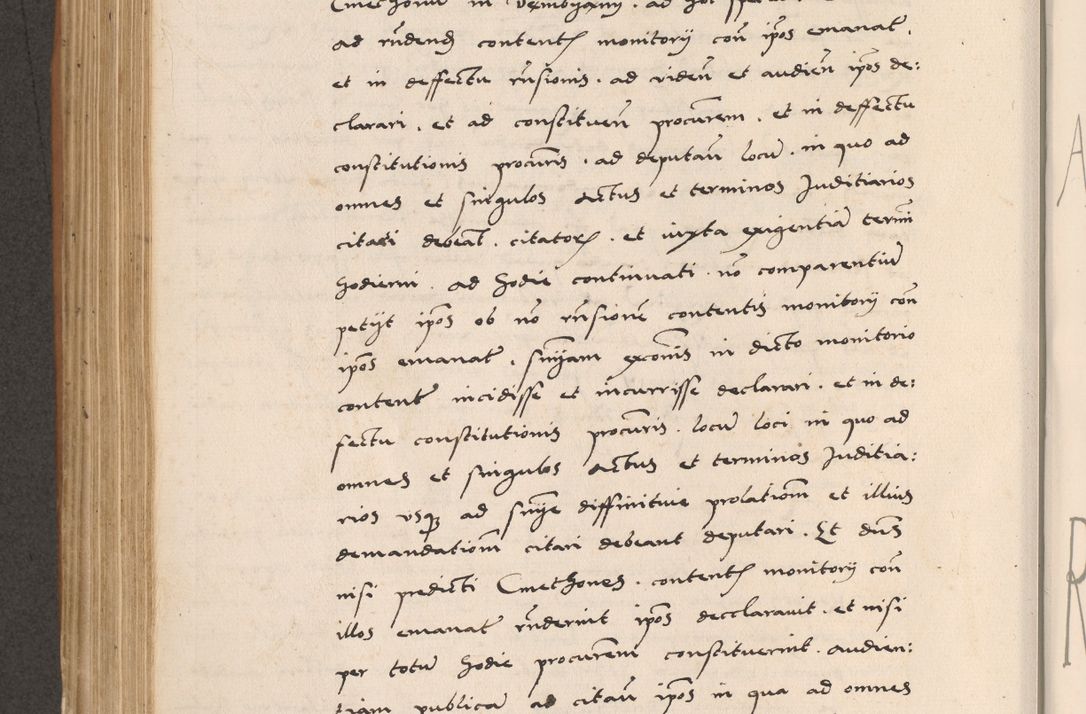 Cmethonu in ad
ad rn̄dend contentꝭ monitorij con̄ ip̄os emanat̄,
et in deffectu rn̄sionis. ad viden̄ et audien̄ ip̄os de:
clarari. et ad constituen̄ procurem. et in deffectu
constitutionis procuris. ad deputan̄ locū. in quo ad
omnes et singulos actus et terminos Juditiarios
citari debeat. citatorꝭ. et iuxta exigentiā termi
hodierni. ad hodie continuati. nō comparentiū
petijt ip̄os ob nō rn̄sionē contentis monitorij con̄
ip̄os emanat̄. sn̄iam excom̄is in dicto monitorio
content̄ incidisse et incurrisse declarari. et in de:
fectu constitutionis procuris. locū loci in quo ad
omnes et singulos actus et terminos Juditia:
rios vsqꝫ ad sn̄ie diffinitiuie prolationē et illius
demandationē citari debeant deputari. Et dūs
nisi predicti Cmethones. contentꝭ monitorij con̄
illos emanat̄ rn̄derint ip̄os decclarauit. et nisi
per totū hodie procurem constituerint. audien:
tiam publicā ad citan̄ ip̄os in qua ad omnes